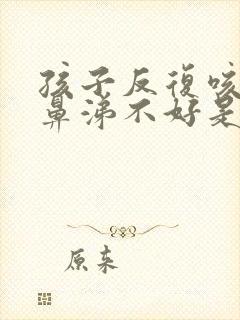 孩子反復咳
鼻涕不好是
原来